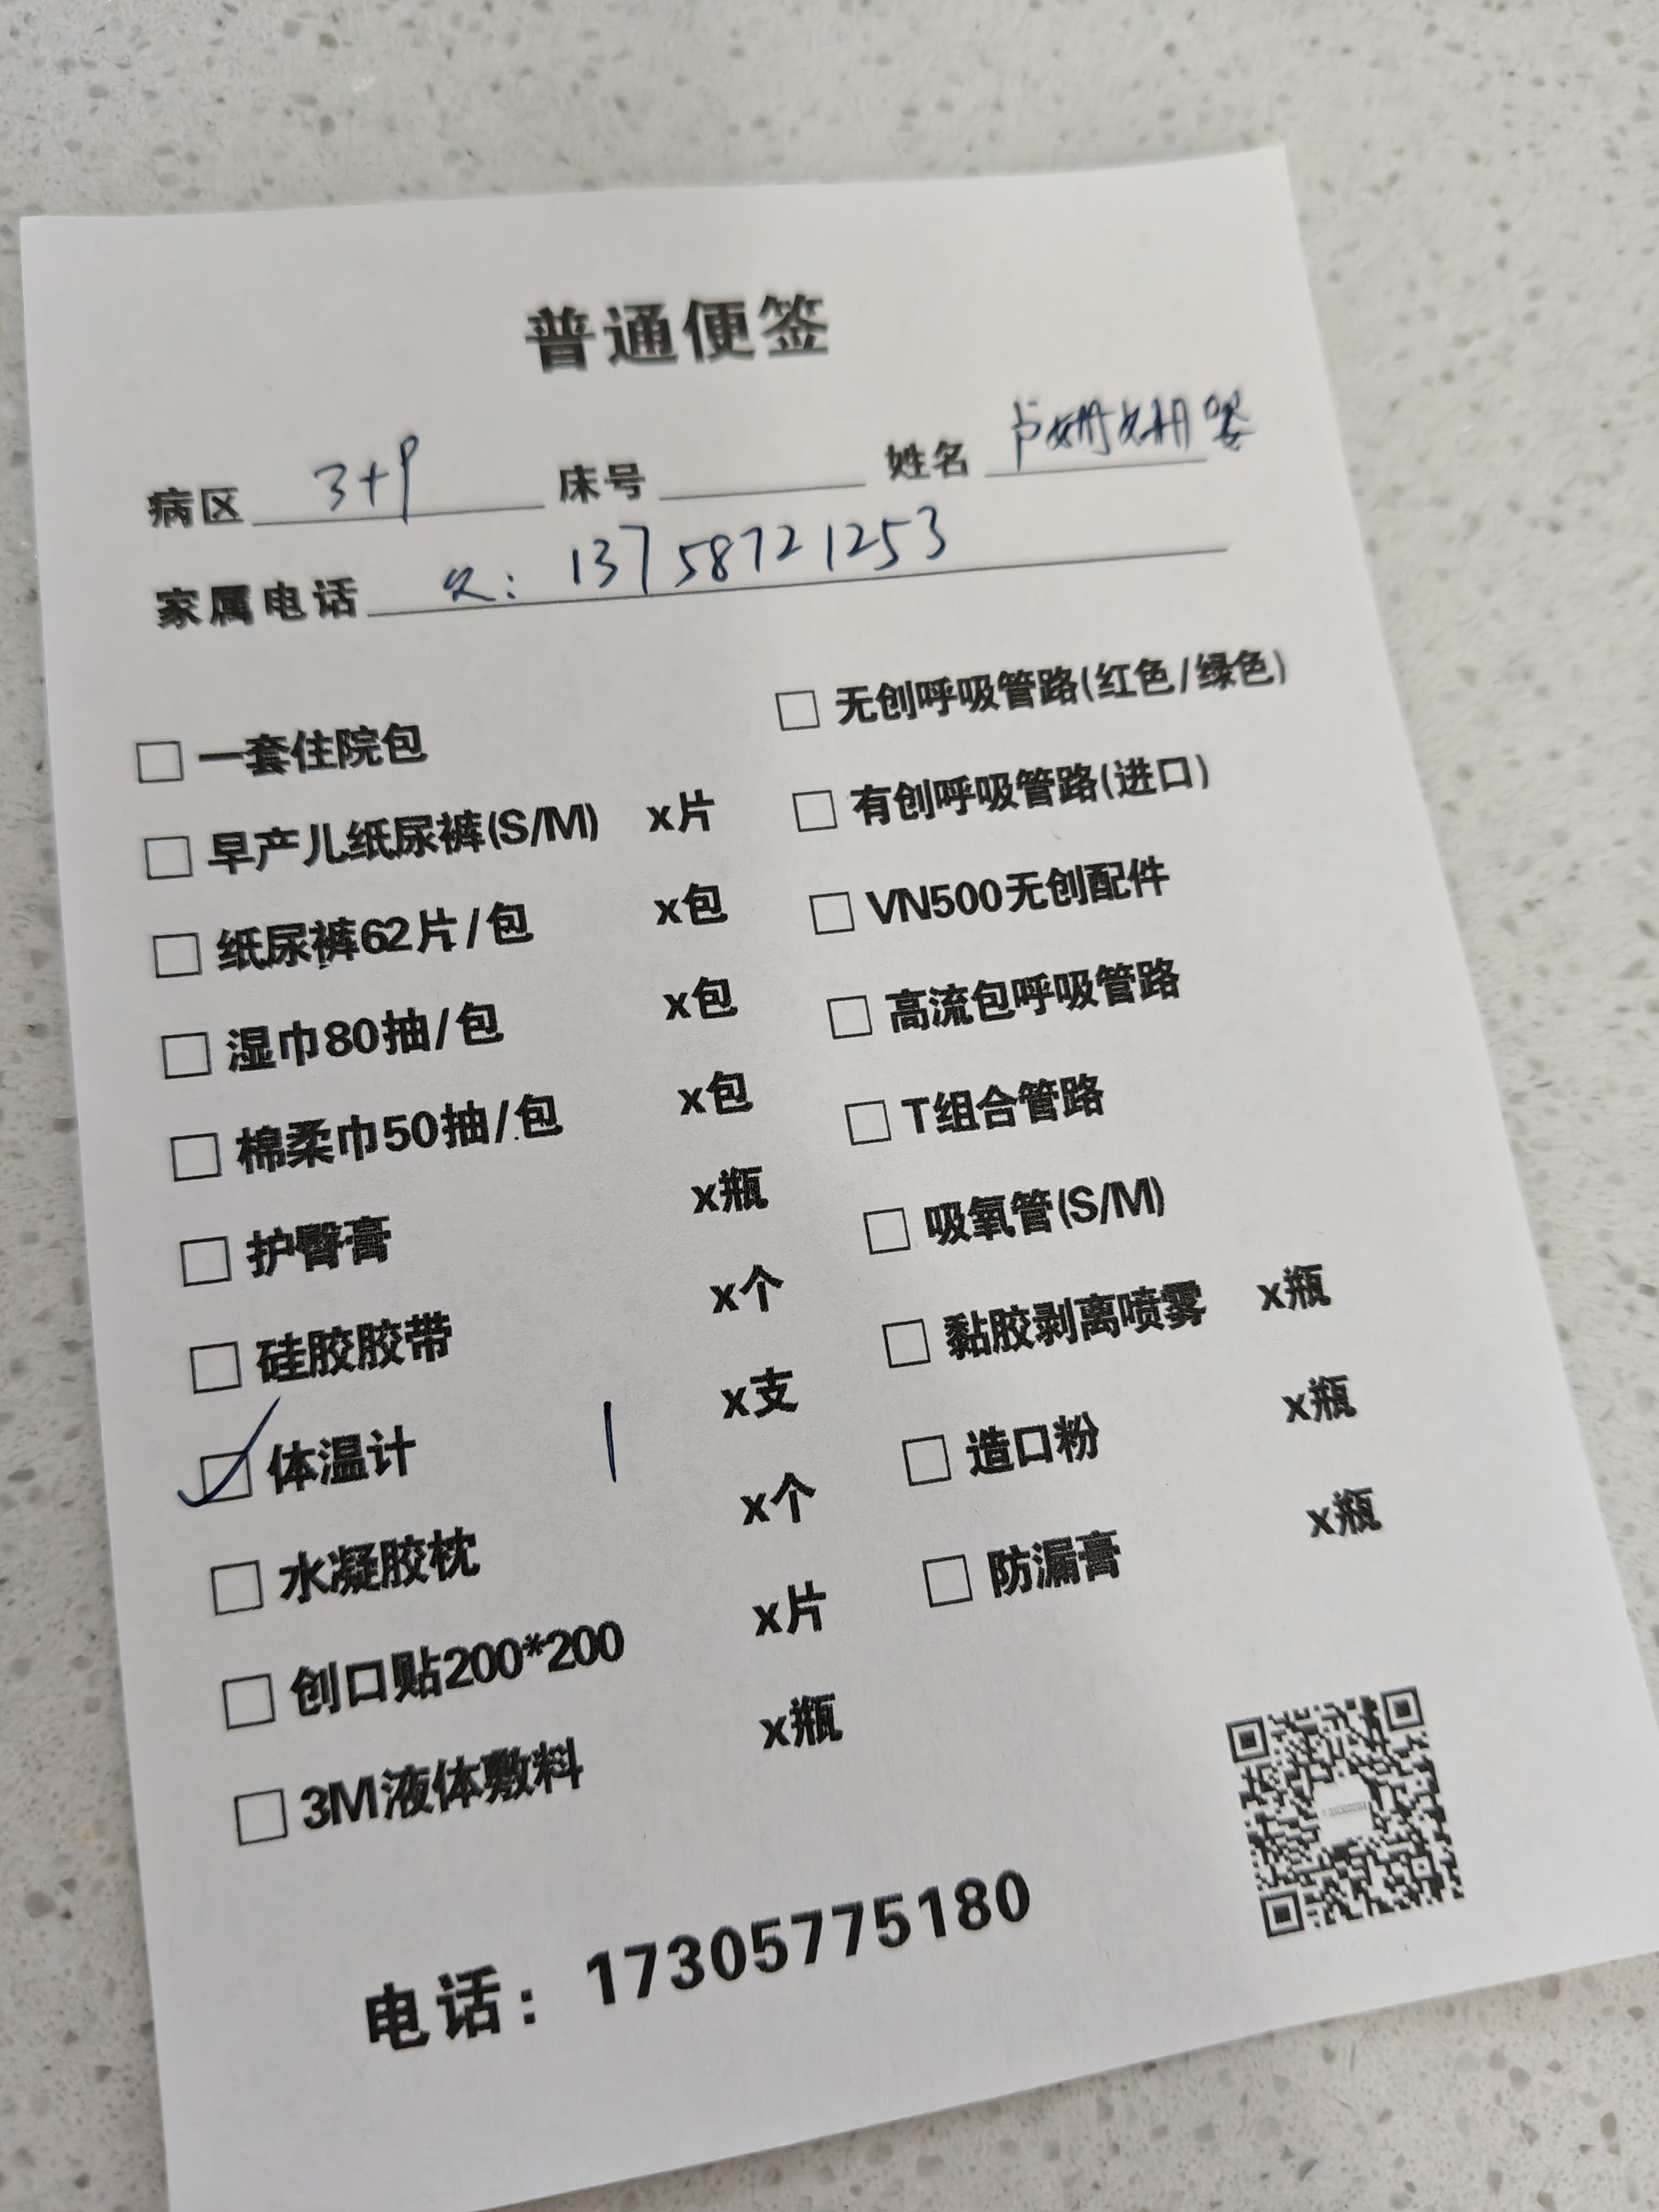 普通便签
病区 3+9 床号 姓名 卢姗姗婴
家属电话 父: 13758721253
一套住院包
早产儿纸尿裤(S/M) x片
纸尿裤62片/包 x包
湿巾80抽/包 x包
棉柔巾50抽/包 x包
护臀膏 x瓶
硅胶胶带 x个
体温计 1 x支
水凝胶枕 x个
创口贴200*200 x片
3M液体敷料 x瓶
无创呼吸管路(红色/绿色)
有创呼吸管路(进口)
VN500无创配件
高流包呼吸管路
T组合管路
吸氧管(S/M)
黏胶剥离喷雾 x瓶
造口粉 x瓶
防漏膏 x瓶
电话: 17305775180